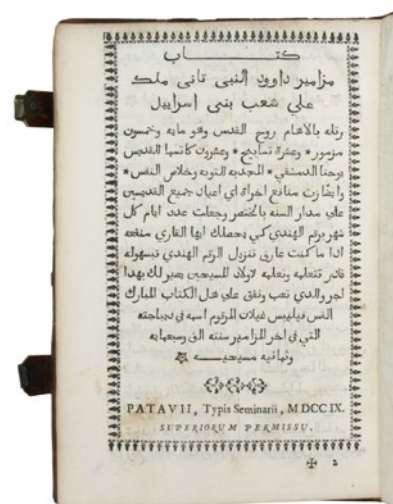 كتاب
مزامير داوود النبي تاني ملك
علي شعب بني اسراييل
رتله بالالهام روح القدس وهو مايه وخمسون
مزمور * وعشرة تسابيح * وعشرون كاتسما القديس
يوحنا الدمشقي * المجديه التوبه وخلاص النفس *
وايضا زت منافع اخراة اي اعيان جميع القديسين
علي مدار السنه بالمختصر وجعلت عدد ايام كل
شهر برقم الهندي كي يحصلك ايها القاري منفعه
اذا ما كنت عارف تنزيل الرقم الهندي فبسهوله
قادر تتعلمه وتعلمه لاولاد المسيحين يصير لك بهدا
اجر والدي تعب ونفق علي هذا الكتاب المبارك
القس فيليبس غيلان المرقوم اسمه في ديباجته
التي في اخر المزامير سنته الف وسبعمايه
وثمانيه مسيحيه
PATAVII, Typis Seminarii, MDCCIX.
SUPERIORUM PERMISSU.
✠ 2